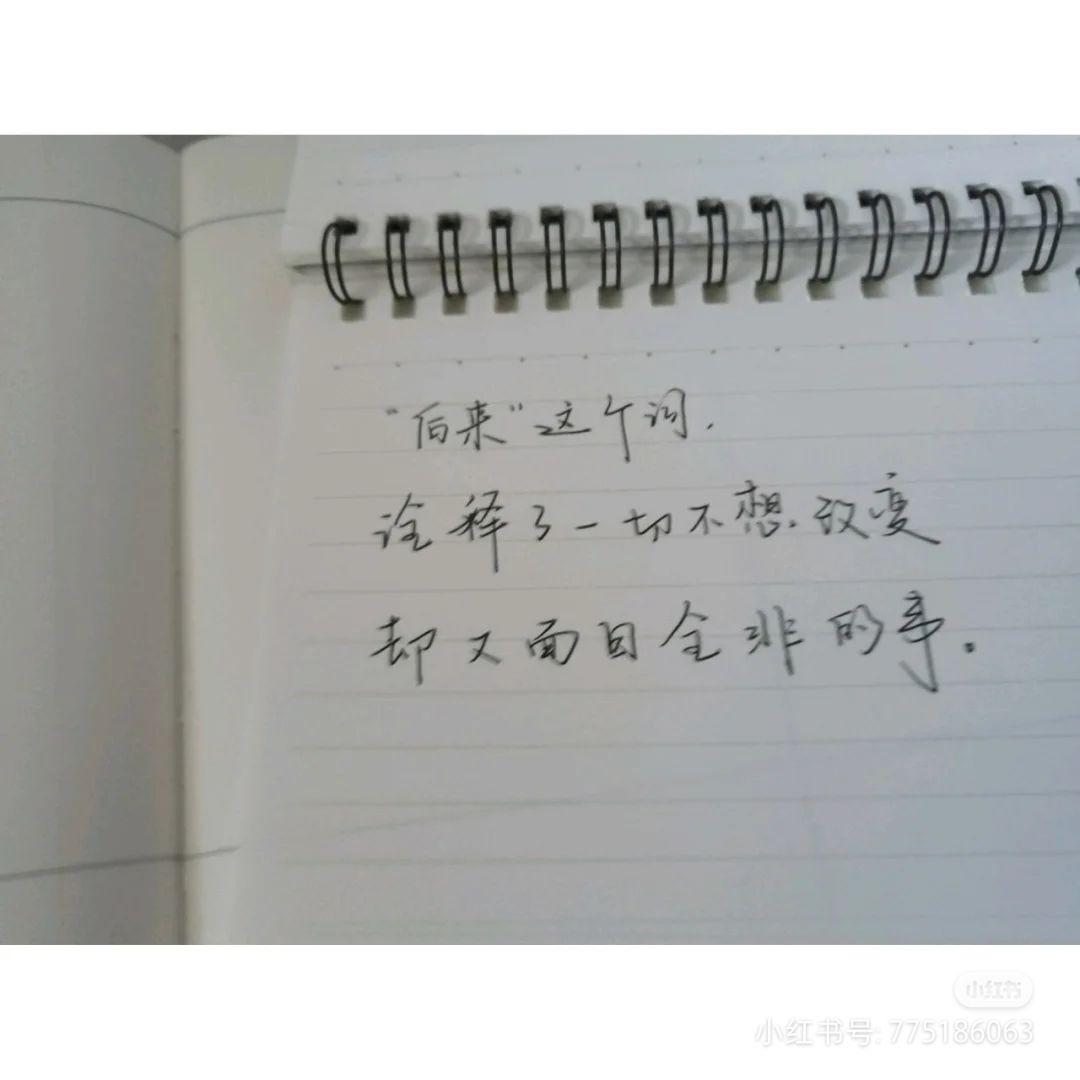 “后来”这个词，
诠释了一切不想改变
却又面目全非的事。
小红书
小红书号: 775186063